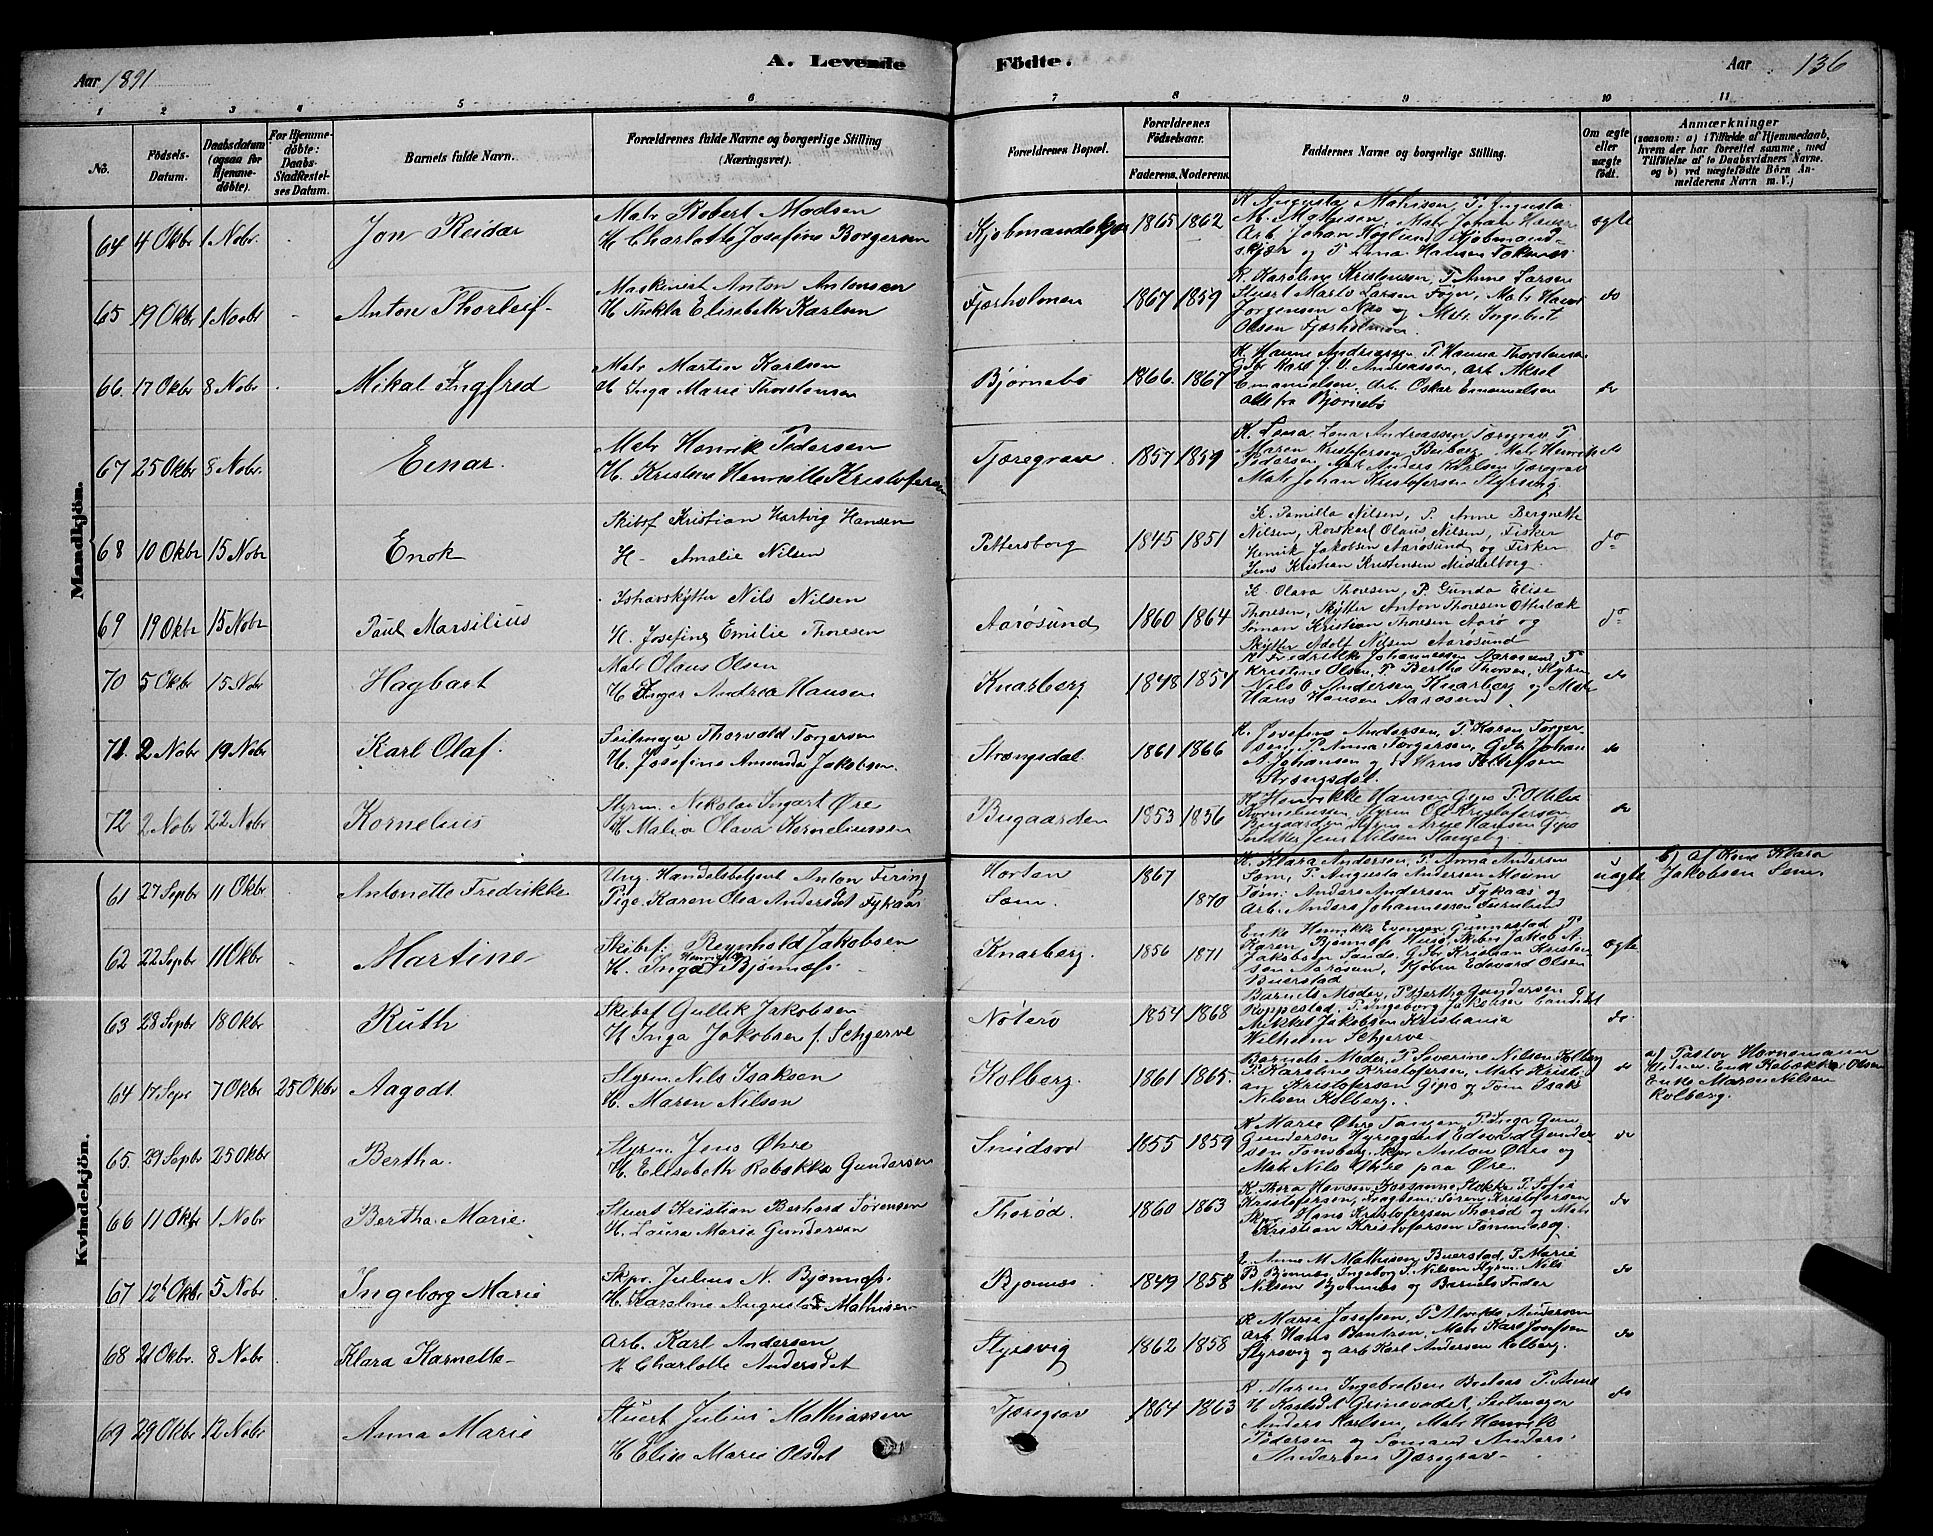 Aar 1891
A. Levende Fødte.
Aar 136
1 2 3 4 5 6 7 8 9 10 11
No. Fødsels-Datum. Daabsdatum (ogsaa for Hjemme-døbte). For Hjemme-døbte: Daabs-Stadfæstel-ses Datum. Barnets fulde Navn. Forældrenes fulde Navne og borgerlige Stilling (Næringsvei). Forældrenes Bopæl. Forældrenes Fødselsaar. Faderens. Moderens. Faddernes Navne og borgerlige Stilling. Om ægte eller uægte født. Anmærkninger
(saasom: a) i Tilfælde af Hjemmedaab,
hvem der har forrettet samme, med
Tilføielse af to Daabsvidners Navne.
og b) ved uægtefødte Børn An-
melderens Navn m. V.)
Mandkjön.
64 4 Okbr 1 Nobr. Jon Reidar
Matr Robert Madsen
H Charlotte Josefine Borgersen
1865 1862
K Augusta Mathisen, P. Augusta
M. Mathisen, Matr Johan Hansen
Arb. Johan Høglund Kjøbmand-
skjær og P. Lina Hansen
ægte
65 19 Okbr 1 Noobr Anton Thorleif
Maskinist Anton Antonsen
H Thekla Elisabeth Karlsen
Fjærholmen 1867 1859
K. Karoline Kristensen, P. Anne Larsen
Stuert Martin Larsen Føjen, Matr Hans
Jørgensen Aas og Matr. Ingebret
Olsen Fjærholmen.
do
66. 17 Okbr 8 Nobr Mikal Ingfred
Matr Martin Karlsen
H Inga Marie Thorstensen
Bjørnebo 1866. 1867
K. Hanne Andreassen P. Hanna Thorstensen
Gbr Hans J. O. Andreassen, Arb Aksel
Emanuelsen, Arb. Oskar Emanuelsen
alle fra Bjørnebø
do
67 25 Okbr 8 Nobr. Einar.
Matr Henrik Pedersen
H. Kristine Henriette Kristofersen
Tjæregrav. 1857 1859
K. Lena Lena Andreassen Tæregrav P.
Maren Kristofersen Buberg, Matr Henrik
Pedersen, Matr Anders Karlsen Tjæregrav
Matr Johan Kristofersen Styrsvig
do
68 10 Okbr 15 Nobr Enok
Skibsf Kristian Hartvig Hansen
H- Amalie Nilsen
Pettersborg 1845 1851
K. Pernille Nilsen, P. Anne Bergnette
Nilsen, Rorskarl Olaus Nilsen, Fisker
Henrik Jakobsen Aarøsund og Fisker
Jens Kristian Kristensen Middelborg.
do
69 19 Okbr 15 Nobr Paul Marsilius
Ishavskytter Nils Nilsen
H. Josefine Emilie Thoresen
Aarøsund 1860 1864
K. Olava Thoresen, P. Gunda Elise
Thoresen, Skytter Anton Thoresen Otterbæk
Sømand Kristian Thoresen Aarø og
Skytter Adolf Nilsen Aarøsund
do
70 5 Okbr 15 Nobr Hagbart
Matr Olaus Olsen
H Inger Andrea Hansen
Knarberg 1848 1851
K Fredrikke Johannessen Aarøsund, P.
Kristine Olsen, P. Berthe Thorsen, Styrm
Nils O. Andersen Knarberg og Matr
Hans Hansen Aarøsund
do
71 2 Nobr 19 Nobr Karl Olaf.
Seilmager Thorvald Torgersen
H. Josefine Amunda Jakobsen.
Strængsdal. 1861 1866
K. Josefine Andersen, P. Karen Torger-
sen, P. Anna Torgersen, Gbr Johan
A Johansen og Hans Pettersen
Strængsdal.
do
72 2 Nobr 22 Nobr Kornelius
Styrm. Nikolai Ingart Øre
H Malia Olava Korneliussen
Bugaarden 1853 1856
K. Henrikke Hansen Gipø P. Othilie
Korneliussen Styrm Ole Kristofersen
Bugaarden, Styrm Arne Hansen Gipø
do
Kvindekjön.
61 27 Sepbr 11 Okbr Antonette Fredrikke
Ung. Handelsbetjent Anton Firing
Pige Karen Olsa Andersdt Fykaas
Horten
Sem. 1867
1870
K. Klara Andersen, P. Anna Andersen
Sem, P. Augusta Andersen
Tøm: Anders Andersen Fykaas og
Arb. Anders Johannessen Furulund
uægte
b) af Kone Klara
Jakobsen Sem
62 22 Sepbr 11 Okbr Martine
Skibsf: Reynhold Jakobsen
H. Inga Henriette Bjønnæs.
Knarberg. 1856 1871
Enke Henrikke Evensen Gunnestad, P.
Karen Bjønnæs Husø, Skibsr Jakob A.
Jakobsen Sande, Gbr Kristian Kristen-
sen Aarøsun, Kjøbm Edevard Olsen
Buerstad
ægte
63 28 Sepbr 18 Okbr Ruth
Skibsf Gullik Jakobsen
H Inga Jakobsen f. Schjerve
Nøterø 1854 1868
Barnets Moder, P Bertha Gundersen
Roppestad, P. Ingeborg Jakobsen Candidat
Mikkel Jakobsen Kristiania
Wilhelm Schjerve
do.
64 17 Sepr 7 Okbr 25 Okbr Aagodt
Styrm. Nils Isaksen
H. Maren Nilsen
Kolberg. 1861 1865.
Barnets Moder, P Severine Nilsen Kolberg
P Karoline Kristofersen, Matr Kristi-
an Kristofersen Gipø og Tøm Isak
Nilsen Kolberg.
do
af Pastor Hornemann
Enke Rabækka Olsen
Enke Maren Nilsen
Kolberg.
65. 29 Sepbr 25 Okbr Bertha.
Styrm. Jens Øhre
H. Elisabeth Rabækka Gundersen
Smidsrød 1855 1859
K Marie Øhre Tangen, P. Inga Gun
Gundersen Hyreggent Edevard Gunder
sen Tønsberg, Skpr Anton Øhre og
Matr Nils Øhre paa Øre.
do
66 11 Okbr 1 Nobr Bertha Marie.
Stuert Kristian Berhard Sørensen
H. Laura Marie Gundersen
Thorød. 1860 1863
K. Thora Hansen Stokke P. Sofie
Kristofersen, Søren Kristofersen
Skpr Hans Kristofersen Thorød og Matr
Kristian Kristofersen Tømmevog.
do
67 12 Okbr 5 Nobr Ingeborg Marie
Skpr. Julius N. Bjønnæs.
H. Karoline Augusta Mathisen
Bjønnæs 1849 1858
E. Anne M Mathisen, Buerstad, P. Marie
B Bjønnæs, Ingeborg S. Nilsen Styrm. Nils
Nilsen Bjønnæs og Barnets Fader
do
68 21 Okbr. 8 Nobr Klara Karnette
Arb. Karl Andersen
H Charlotte Andersdt
Styrsvig 1862 1858
K Marie Josefsen, P. Alvilde Andersen
Arb. Hans Bentzen, Matr Karl Josefsen
Styrsvig og Arb Karl Andersen Kolberg.
do
69 29 Okbr 12 Nobr Anna Marie
Stuert Julius Mathiassen
H Elise Marie Olsdt
Tjæregrav 1864 1863
K. Maren Ingebretsen Buelaas P. Anne
H Karlsdt Grinesvædet Seilmager
Anders Karlsen, Matr Henrik
Pedersen og Sømand Anders
Andersen Tjæregrav
do